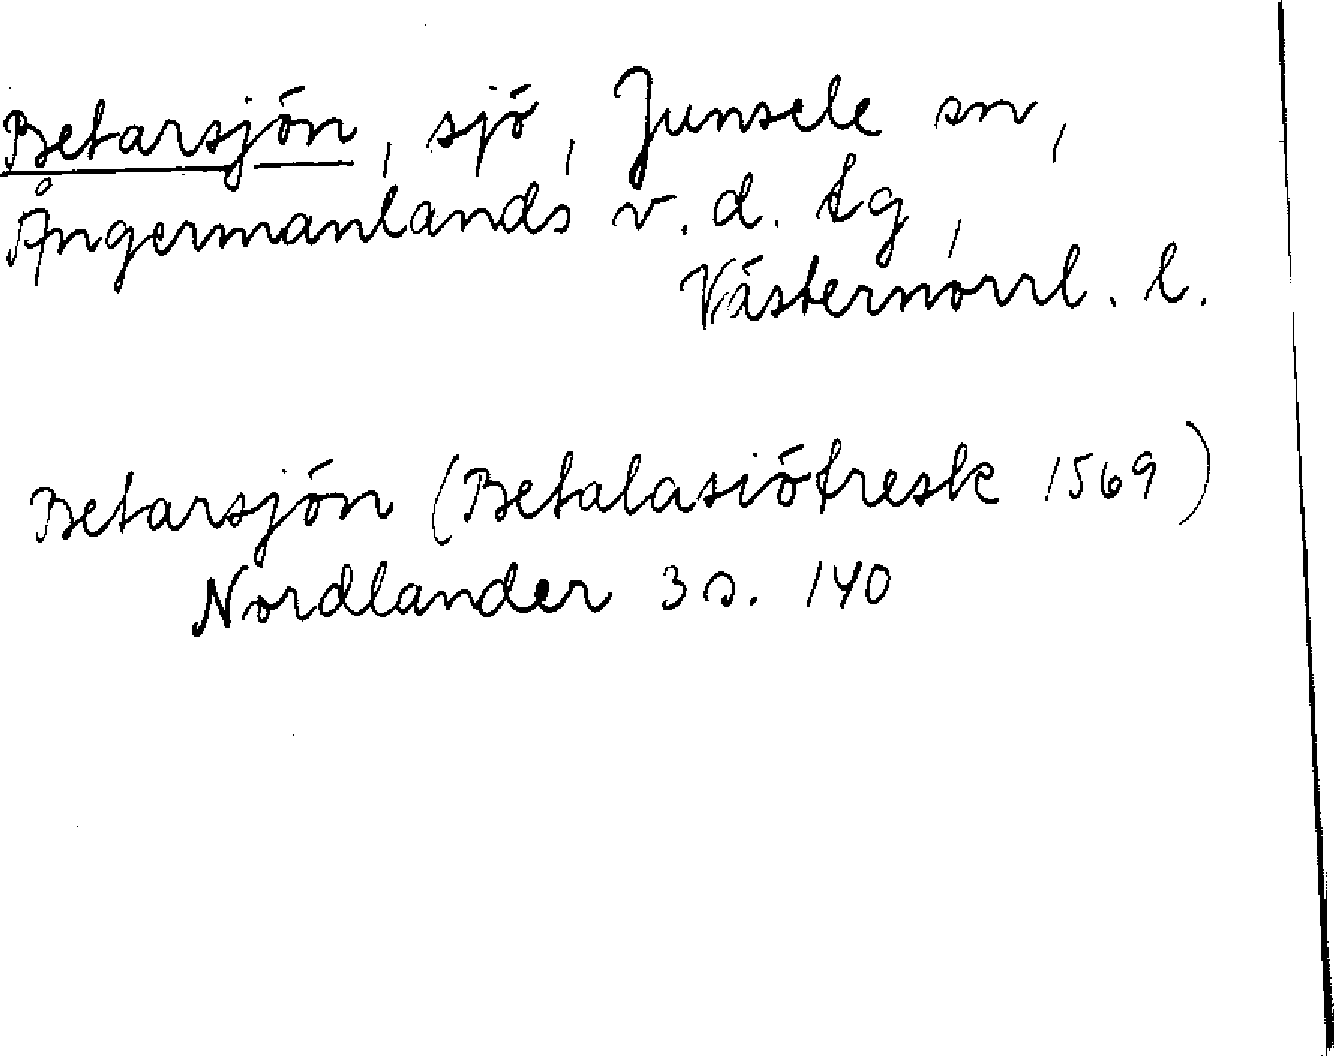 Betarsjön, sjö, Junsele sn,
Ångermanlands v. d. tg,
Västernorrl. l.
Betarsjön (Betalasiötresk 1569)
Nordlander 3 s. 140